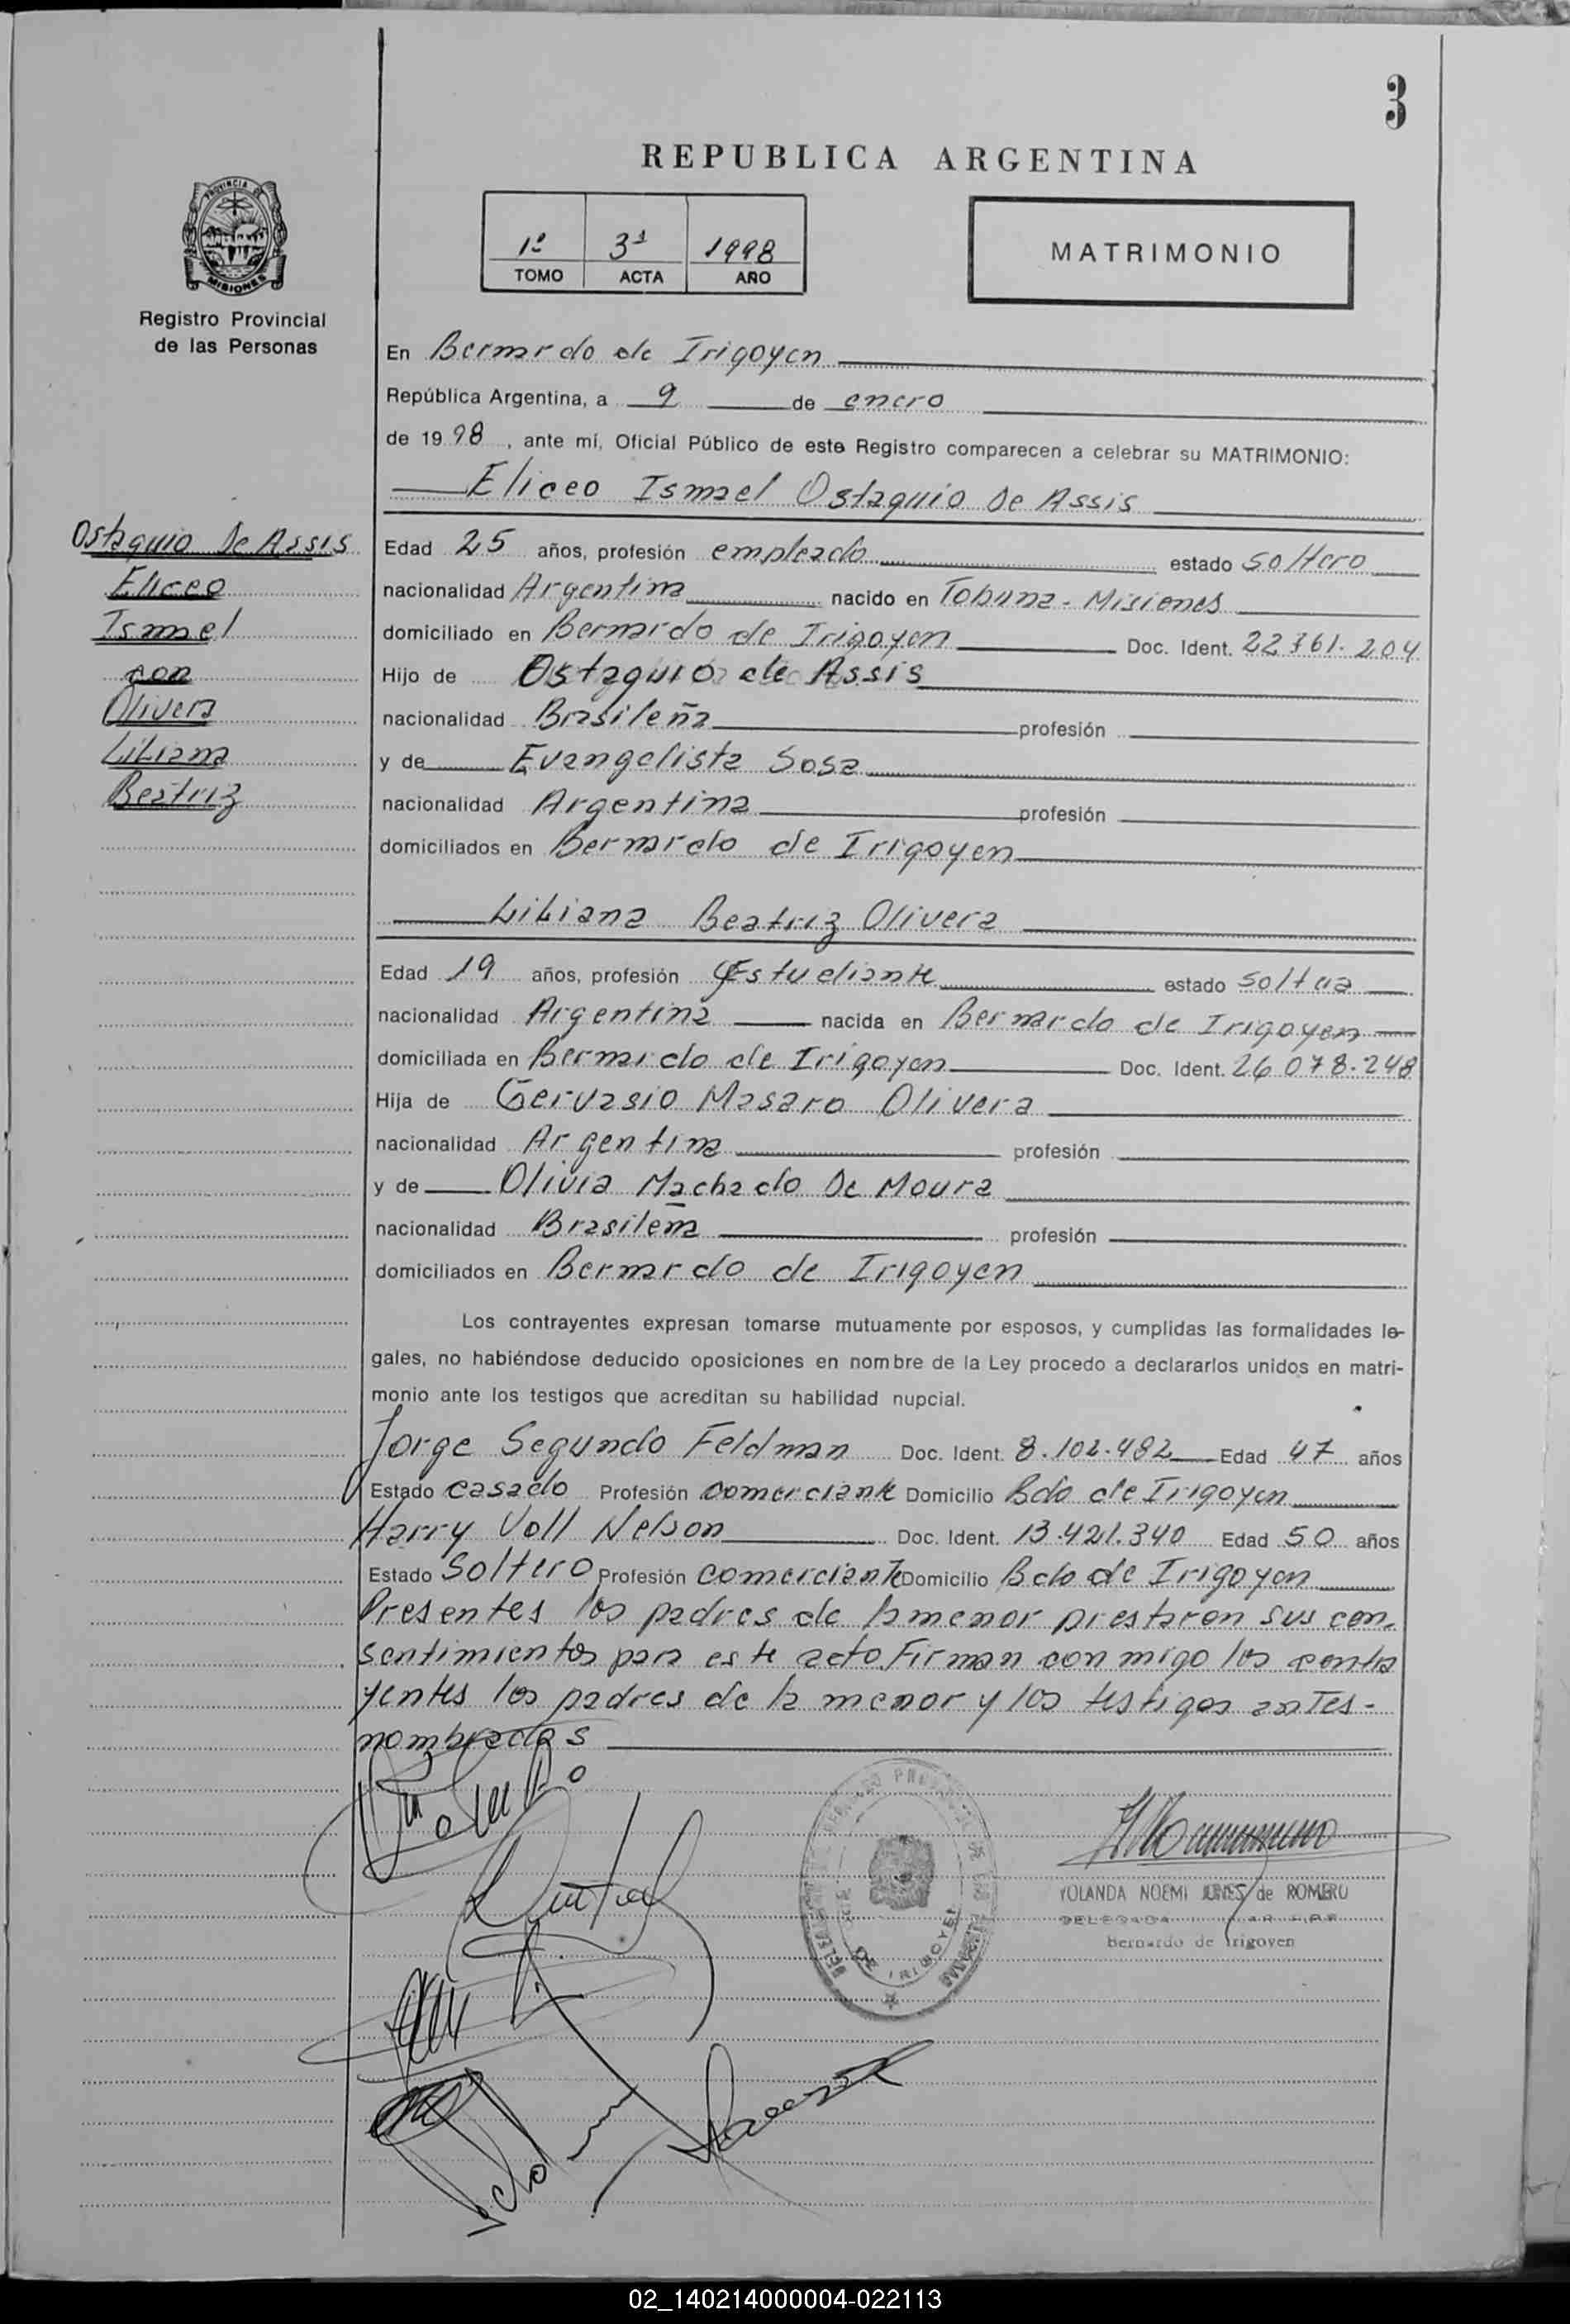 3
REPUBLICA ARGENTINA
PROVINCIA DE
MISIONES
Registro Provincial
de las Personas
1º 3ª 1998
TOMO ACTA AÑO
MATRIMONIO
En Bernardo de Irigoyen
República Argentina, a 9 de enero
de 1998, ante mí, Oficial Público de este Registro comparecen a celebrar su MATRIMONIO:
Eliceo Ismael Ostaquio De Assis
Ostaquio De Assis
Eliceo
Ismael
con
Olivera
Liliana
Beatriz
Edad 25 años, profesión empleado estado soltero
nacionalidad Argentina nacido en Tobuna - Misiones
domiciliado en Bernardo de Irigoyen Doc. Ident. 22.361.204
Hijo de Ostaquio de Assis
nacionalidad Brasileña profesión
y de Evangelista Sosa
nacionalidad Argentina profesión
domiciliados en Bernardo de Irigoyen
Liliana Beatriz Olivera
Edad 19 años, profesión Estudiante estado soltera
nacionalidad Argentina nacida en Bernardo de Irigoyen
domiciliada en Bernardo de Irigoyen Doc. Ident. 26.078.248
Hija de Gervasio Masaro Olivera
nacionalidad Argentina profesión
y de Olivia Machado De Moura
nacionalidad Brasileña profesión
domiciliados en Bernardo de Irigoyen
Los contrayentes expresan tomarse mutuamente por esposos, y cumplidas las formalidades le-
gales, no habiéndose deducido oposiciones en nombre de la Ley procedo a declararlos unidos en matri-
monio ante los testigos que acreditan su habilidad nupcial.
Jorge Segundo Feldman Doc. Ident. 8.102.482 Edad 47 años
Estado casado Profesión comerciante Domicilio Bdo de Irigoyen
Harry Voll Nelson Doc. Ident. 13.421.340 Edad 50 años
Estado Soltero Profesión comerciante Domicilio Bdo de Irigoyen
Presentes los padres de la menor prestaron sus con-
sentimientos para este acto. Firman con migo los contra
yentes los padres de la menor y los testigos antes-
nombrados
YOLANDA NOEMI de ROMERO
DELEGADA
Bernardo de Irigoyen
02_140214000004-022113